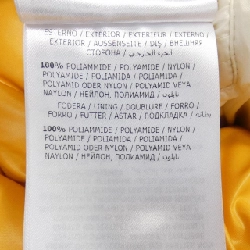 ESTERNO / EXTERIOR / EXTERIEUR / EXTERNO /
EXTERIOR / AUSSENSEITE / DIŞ / ВНЕШНЯЯ
СТОРОНА /
100% POLIAMMIDE / POLYAMIDE / NYLON /
POLYAMIDE / POLIAMIDA / POLIAMIDA /
POLYAMID ODER NYLON / POLYAMIC VEYA
NAYLON / НЕЙЛОН, ПОЛИАМИД /
FODERA / LINING / DOUBLURE / FORRO /
FORRO / FUTTER / ASTAR / ПОДКЛАДКА /
100% POLIAMMIDE / POLYAMIDE / NYLON /
POLYAMIDE / POLIAMIDA / POLIAMIDA /
POLYAMID ODER NYLON / POLYAMIC VEYA
NAYLON / НЕЙЛОН, ПОЛИАМИД /